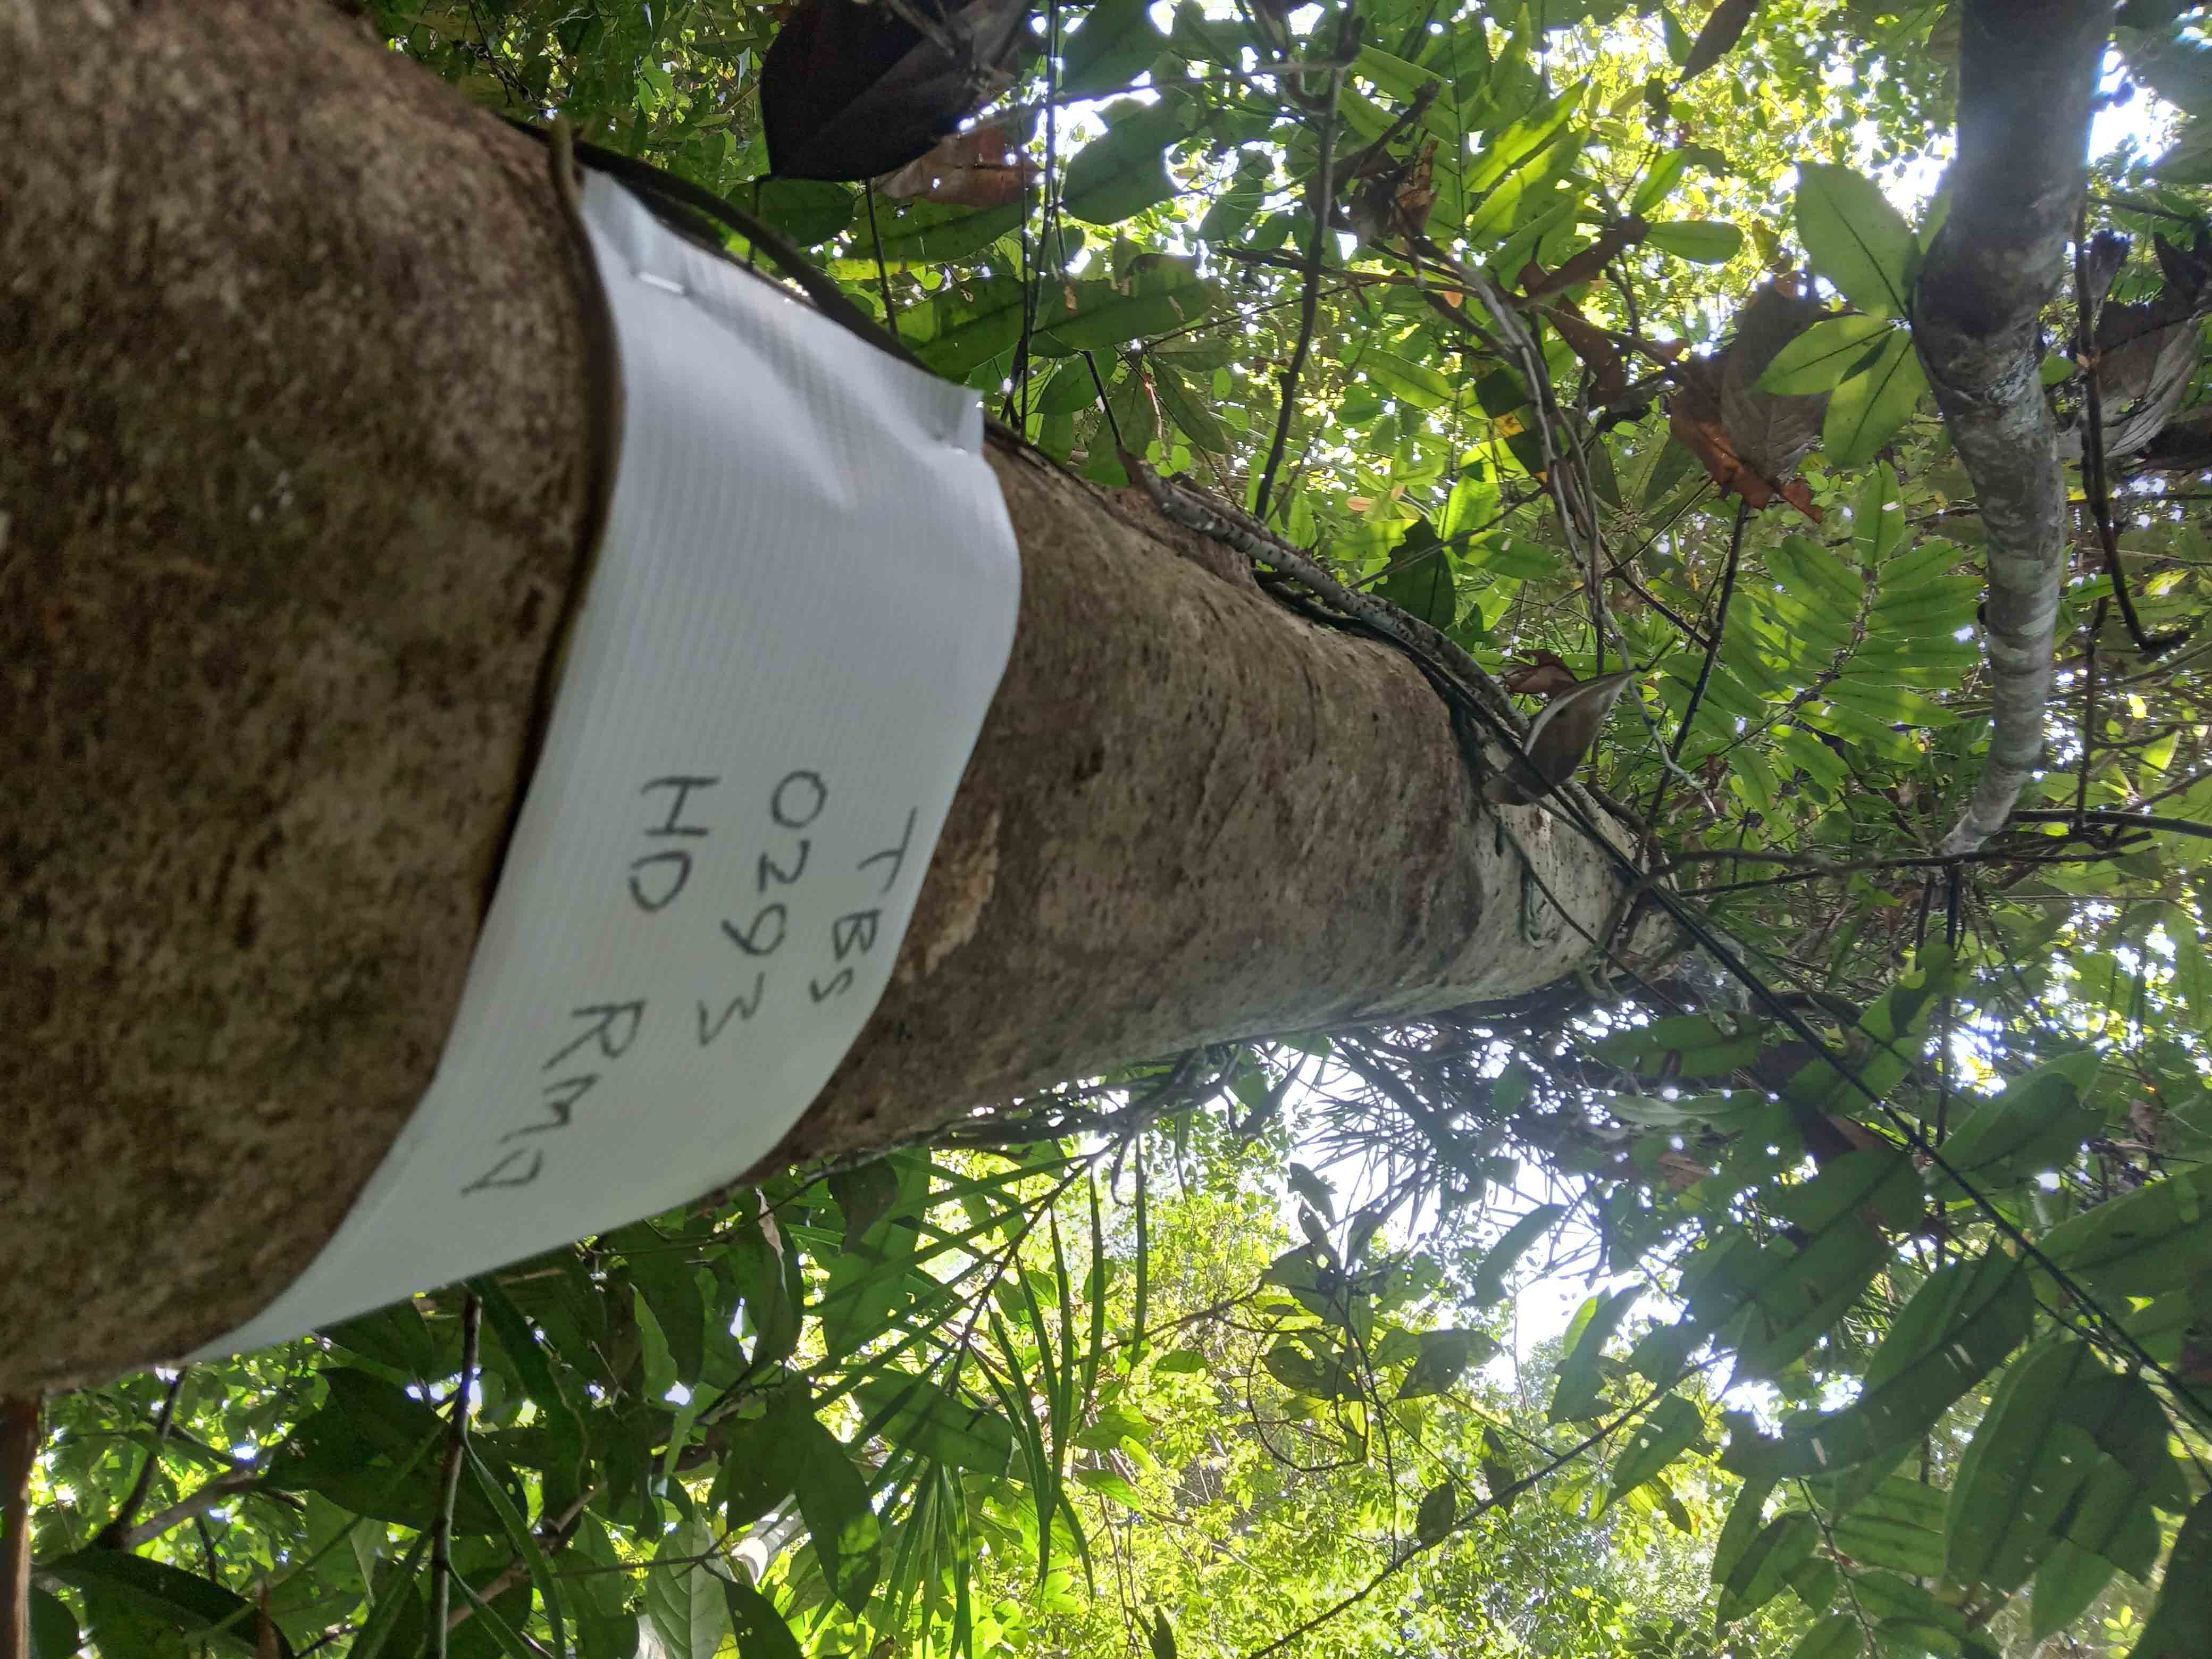 TBS
0293
HD RMD